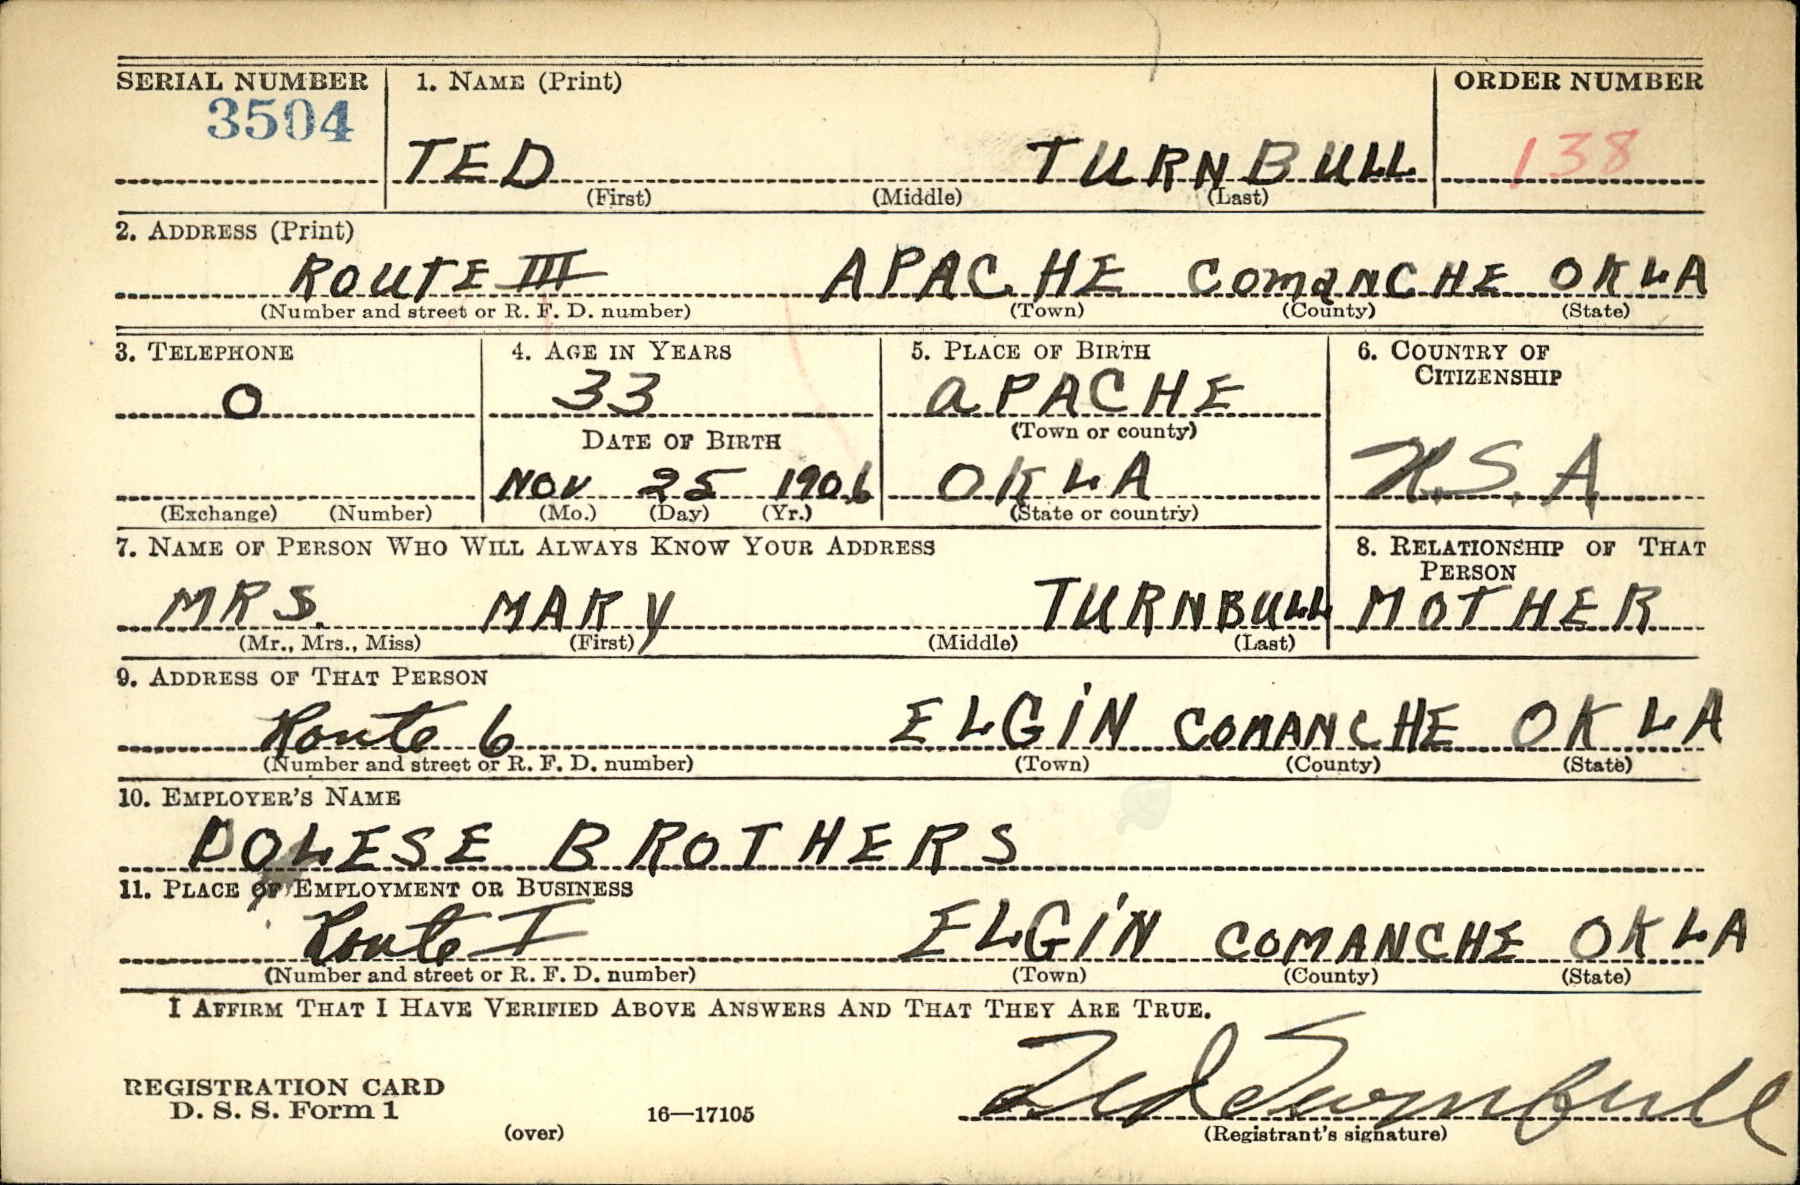 SERIAL NUMBER 1. NAME (Print) ORDER NUMBER
3504
TED TURNBULL 138
(First) (Middle) (Last)
2. ADDRESS (Print)
ROUTE III APACHE COMANCHE OKLA
(Number and street or R. F. D. number) (Town) (County) (State)
3. TELEPHONE 4. AGE IN YEARS 5. PLACE OF BIRTH 6. COUNTRY OF
CITIZENSHIP
O 33 APACHE
(Town or county)
DATE OF BIRTH
NOV 25 1906 OKLA U.S.A
(Exchange) (Number) (Mo.) (Day) (Yr.) (State or country)
7. NAME OF PERSON WHO WILL ALWAYS KNOW YOUR ADDRESS 8. RELATIONSHIP OF THAT
PERSON
MRS. MARY TURNBULL MOTHER
(Mr., Mrs., Miss) (First) (Middle) (Last)
9. ADDRESS OF THAT PERSON
Route 6 ELGIN COMANCHE OKLA
(Number and street or R. F. D. number) (Town) (County) (State)
10. EMPLOYER'S NAME
DOLESE BROTHERS
11. PLACE OF EMPLOYMENT OR BUSINESS
Route I ELGIN COMANCHE OKLA
(Number and street or R. F. D. number) (Town) (County) (State)
I AFFIRM THAT I HAVE VERIFIED ABOVE ANSWERS AND THAT THEY ARE TRUE.
Ted Turnbull
REGISTRATION CARD
D. S. S. Form 1 16—17105
(over) (Registrant's signature)